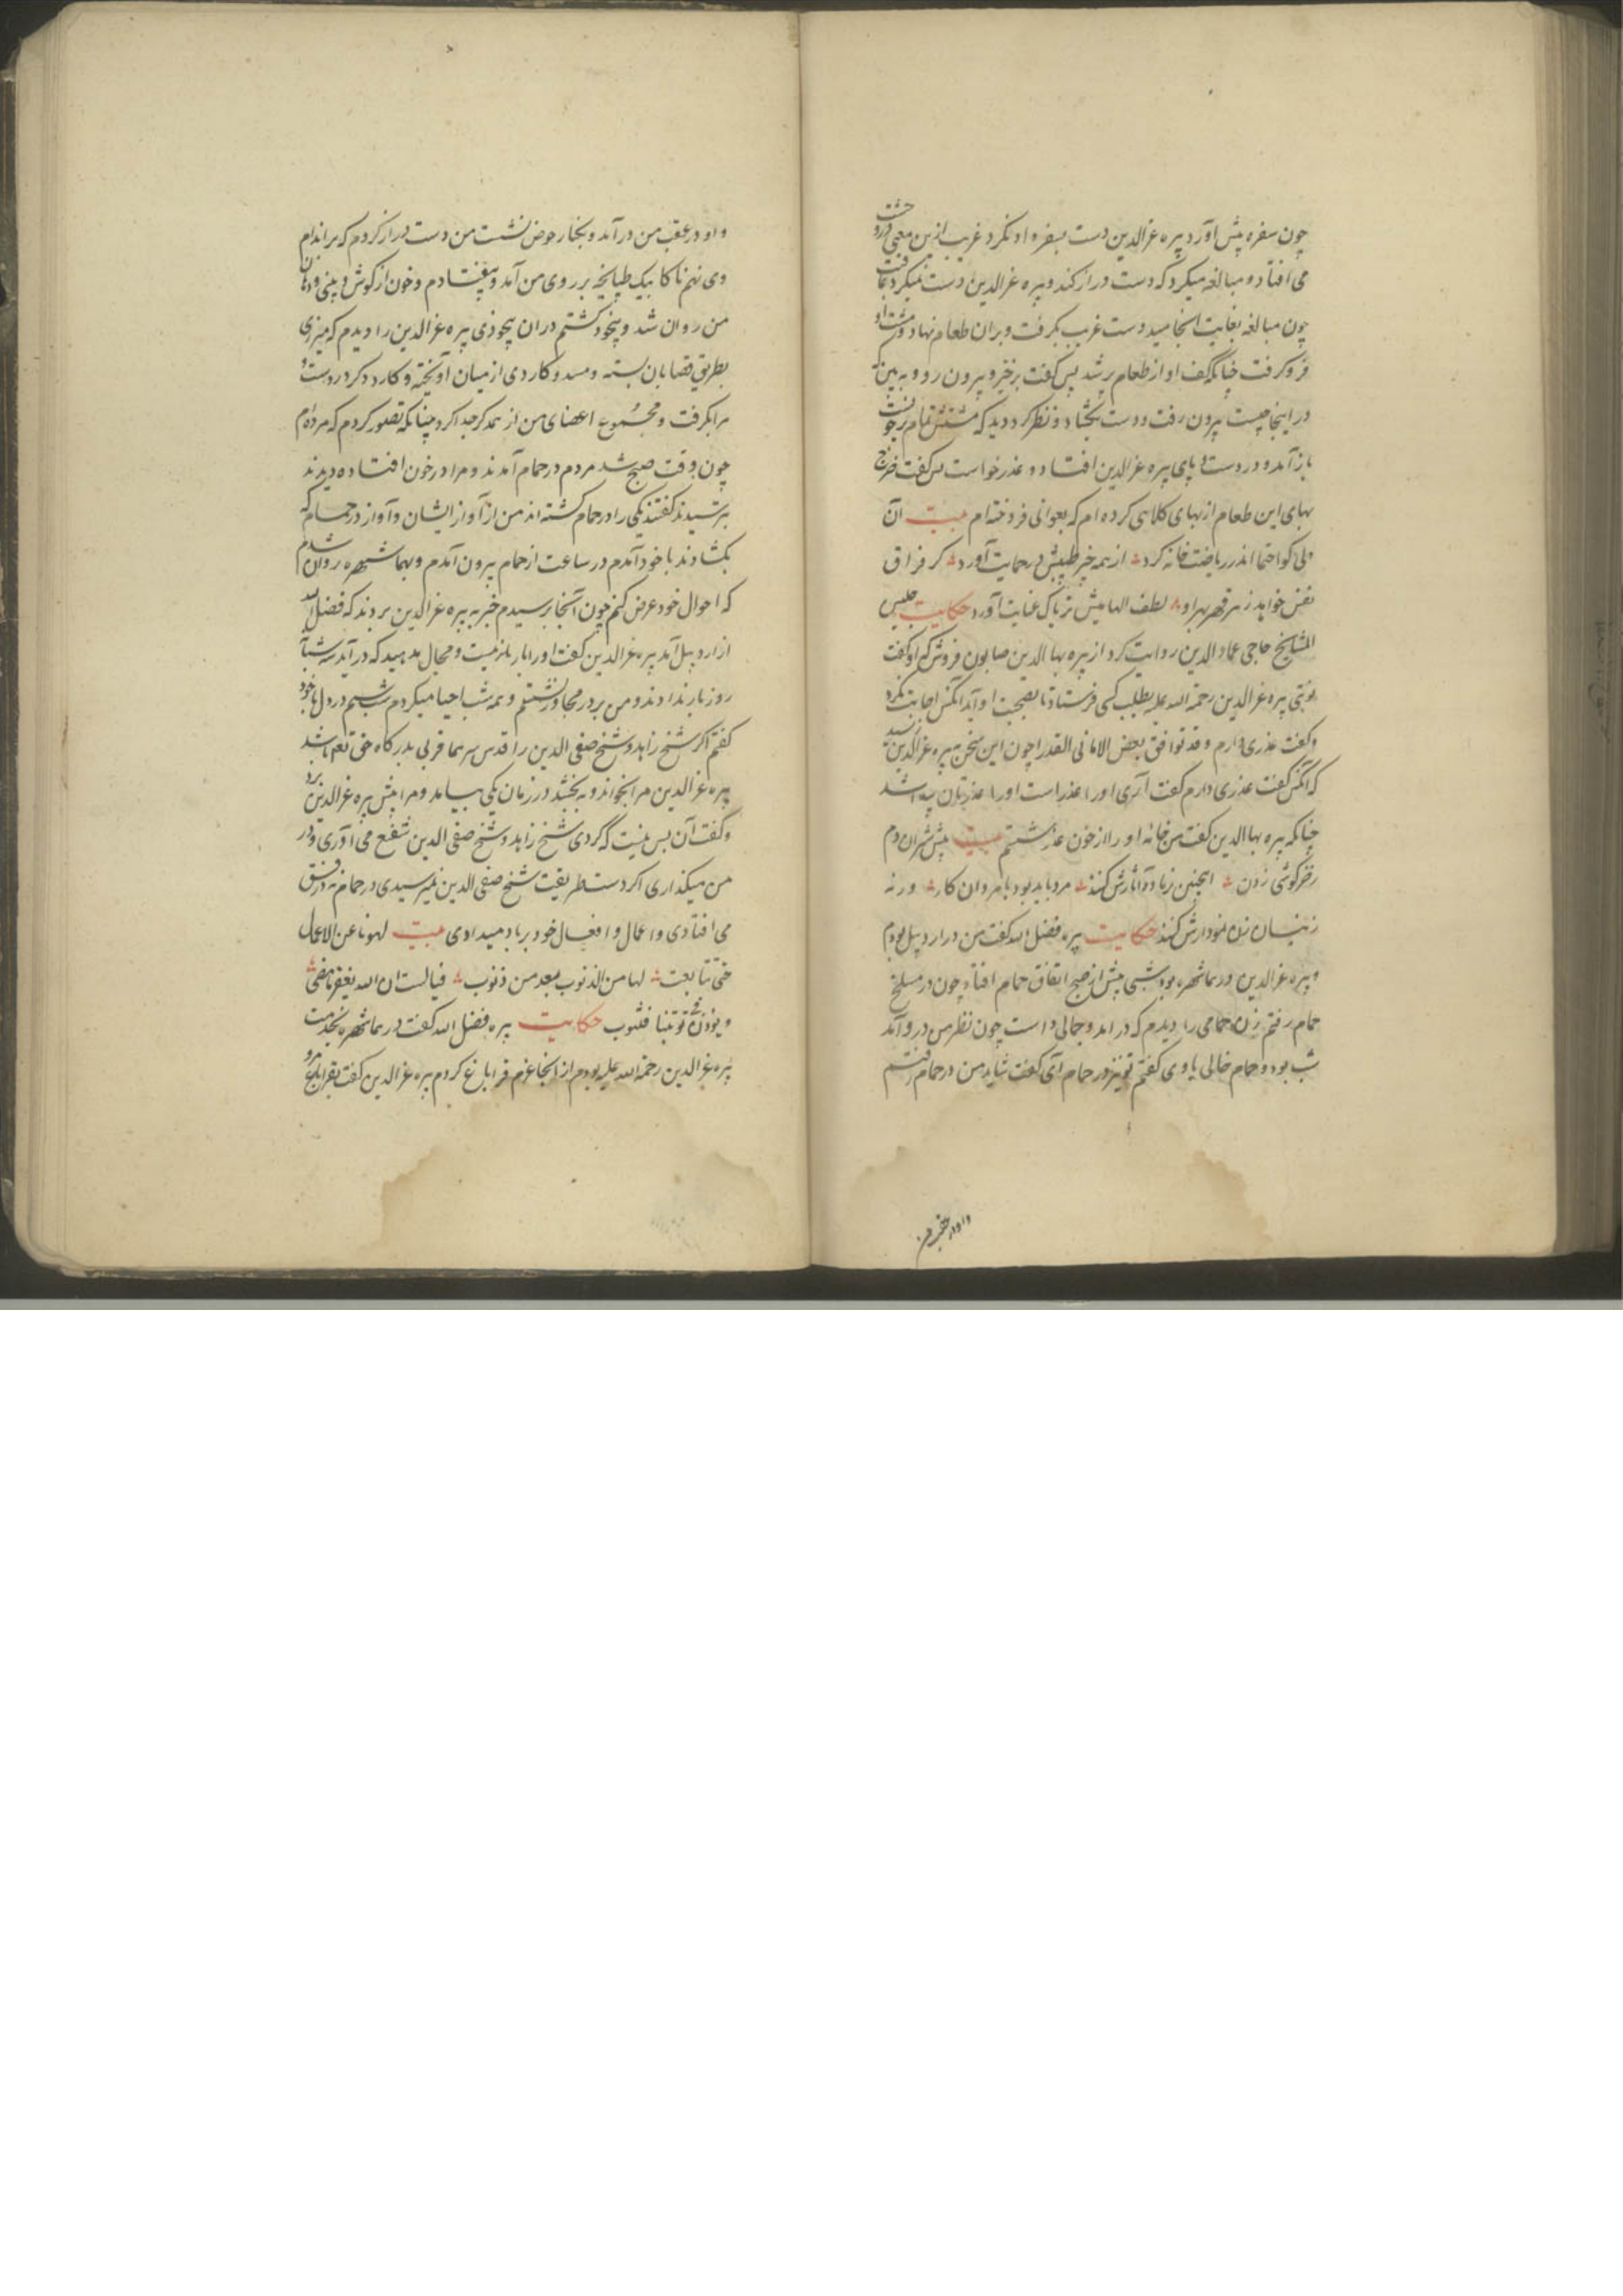 چون سفره پیش آورد پیره عزالدین دست بسفره او نکرد غریب ازین معنی در وحشت
می افتاد و مبالغه میکرد که دست دراز کند و پیره عزالدین دست نمیکرد بعاقبت
چون مبالغه بغایت انجامید دست غریب بگرفت و بران طعام نهاد و مشت او
فرو گرفت چنانکه کف او از طعام پر شد پس گفت برخیز و بیرون رو و به بین که
در اینجا چیست بیرون رفت و دست بگشاد و نظر کرد دید که مشتش تمام پر خونست
باز آمد و در دست و پای پیره عزالدین افتاد و عذر خواست پس گفت
بهای این طعام از بهای کلاهی کرده ام که بعوانی فروخته ام بیت آن
ولی کو احتما اندر ریاضت خانه کرد از همه خیر طبیبش در حمایت آورد گر فراق
نفس خواهد زهر قهر بهر او لطف الهامیش تریاک عنایت آورد حکایت جلیس
المشایخ حاجی عماد الدین روایت کرد از پیره بهاالدین صابون فروش که او گفت
نوبتی پیره عزالدین رحمة الله علیه بطلب کسی فرستاد تا بصحبت او آید آنکس اجابت نکرد
و گفت عذری دارم و قد توافق بعض الامانی القدرا چون این سخن به پیره عزالدین رسید
که آنکس گفت عذری دارم گفت آری او را عذر است او را عذر پیدا شد
چنانکه پیره بهاالدین گفت من خانه او را از خون عذر شستم بیت پیش شیران دم
زخرگوشی زدن اینچنین زیاده آثارش کنند مرد باید بود با مردان کار ورنه
زینسان زن نمودارش کنند حکایت پیره فضل الله گفت من در اردبیل بودم
و پیره عزالدین در بماشهره بود شبی پیش از صبح اتفاق حمام افتاد چون در مسلخ
حمام رفتم زن حمامی را دیدم که در آمد و جمالی داشت چون نظر من در و آمد
شب بود و حمام خالی با وی گفتم تو نیز در حمام آی گفت شاید من در حمام رفتم
و او در عقب من
و او در عقب من در آمد و بکنار حوض نشست من دست دراز کردم که بر اندام
وی نهم ناگاه یک طپانچه بر روی من آمد و بیفتادم و خون از گوش و بینی و دهان
من روان شد و بیخود گشتم در ان بیخودی پیره عزالدین را دیدم که میزری
بطریق قصابان بسته و مسد و کاردی از میان آویخته و کارد در دست و
مرا بگرفت و مجموع اعضای من از همدگر جدا کرد چنانکه تصور کردم که مرده ام
چون وقت صبح شد مردم در حمام آمدند و مرا در خون افتاده دیدند
بترسیدند گفتند یکی را در حمام کشته اند من از آواز ایشان و آواز در حمام که
بگشادند با خود آمدم در ساعت از حمام بیرون آمدم و بماشهره روان شدم
که احوال خود عرض کنم چون آنجا رسیدم خبر به پیره عزالدین بردند که فضل الله
از اردبیل آمد پیره عزالدین گفت او را بار نیست و مجال مدهید که در آید سه شبان
روز بار ندادند و من بر در مجاور نشستم و همه شب احیا میکردم شب سیم در دل با خود
گفتم اگر شیخ زاهد و شیخ صفی الدین را قدس سرهما قربی بدرگاه حق تعالی باشد
پیره عزالدین مرا بخواند و به بخشد در زمان یکی بیامد و مرا پیش پیره عزالدین برد
و گفت آن بس نیست که گردی شیخ زاهد و شیخ صفی الدین شفیع می آوری و در
من میگذاری اگر دست طریقت شیخ صفی الدین نمیرسیدی در حمام در فسق
می افتادی و اعمال و افعال خود بر باد میدادی بیت لهونا عن الاعمال
حتی تتابعت لها من الذنوب بعد من ذنوب فیالیت ان الله یغفر ما مضی
و یوذن فی توبتنا فنتوب حکایت پیره فضل الله گفت در بماشهره بخدمت
پیره عزالدین رحمة الله علیه بودم از انجا عزم قراباغ کردم پیره عزالدین گفت بقراباغ مرو